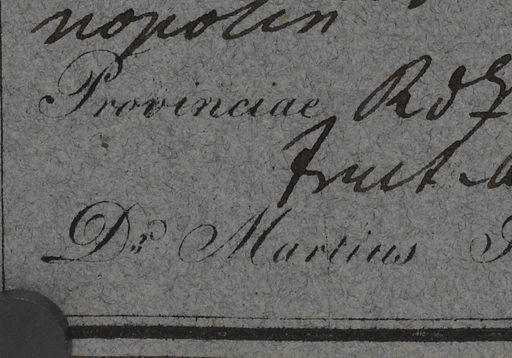 nopolin
Provinciae Rd
fruct
Dr. Martius